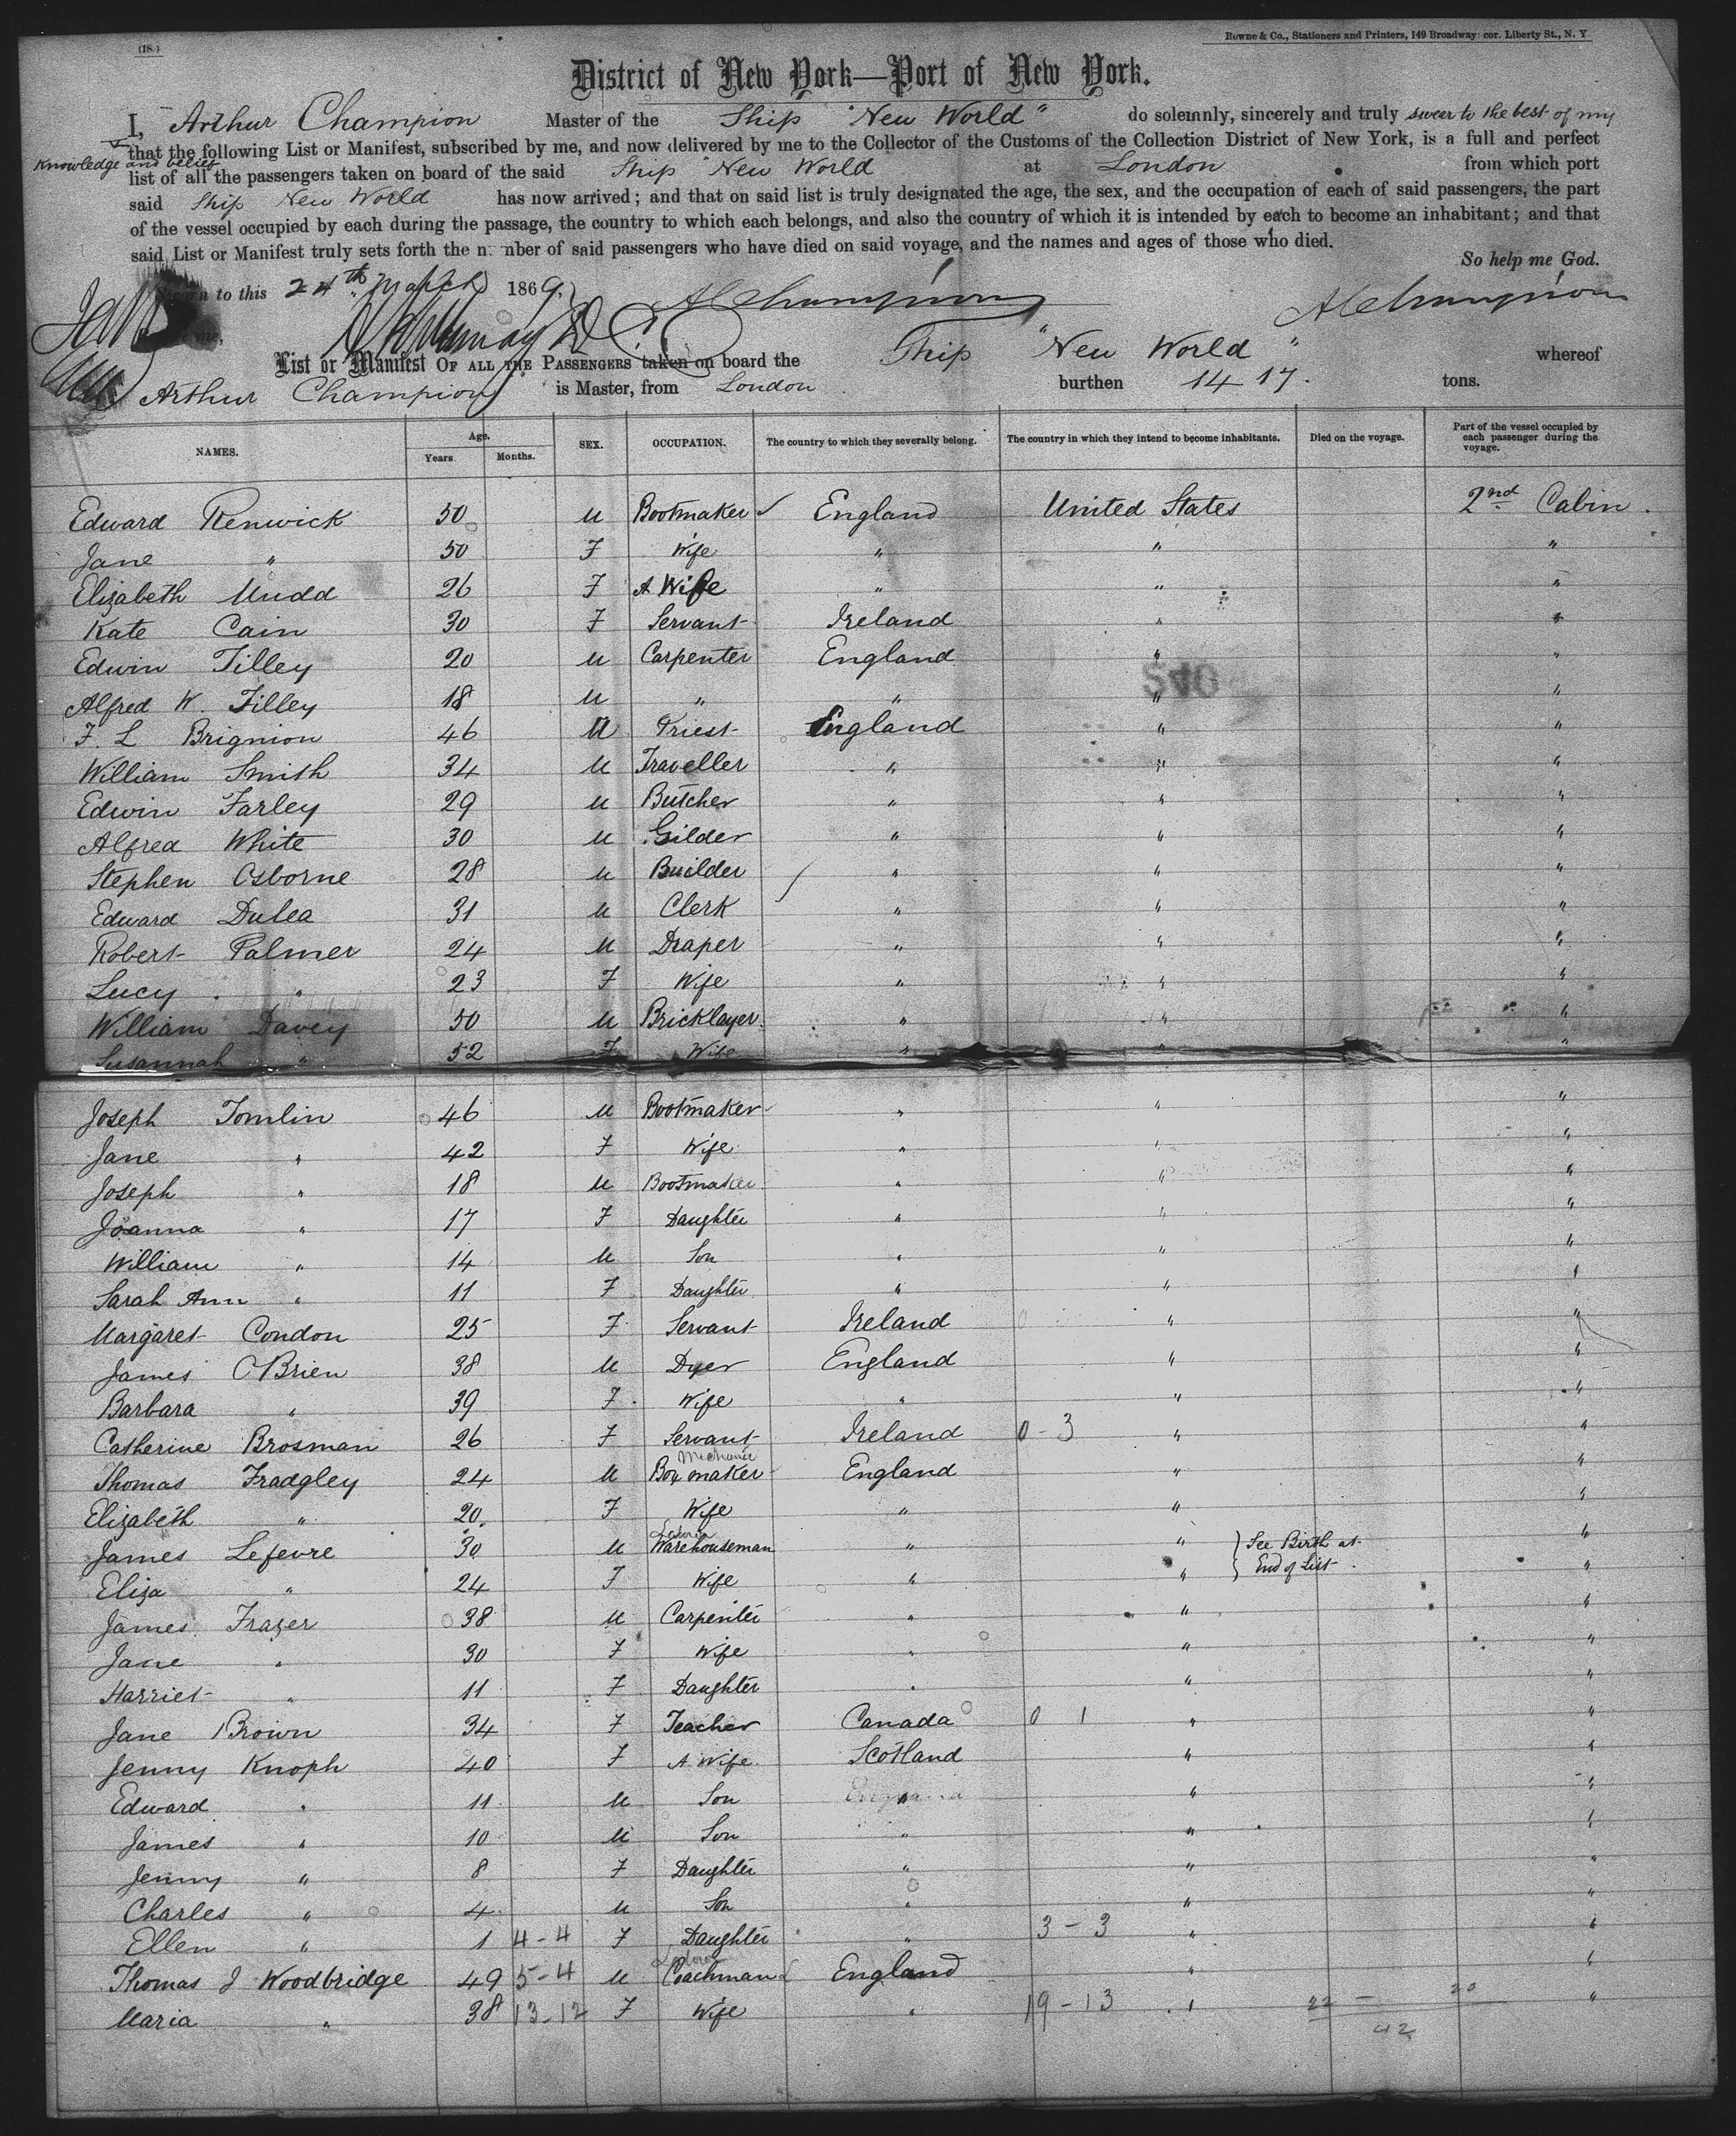 (18.)
Bowne & Co., Stationers and Printers, 149 Broadway cor. Liberty St., N. Y
District of New York—Port of New York.
I, Arthur Champion Master of the Ship "New World" do solemnly, sincerely and truly swear to the best of my
knowledge and belief
that the following List or Manifest, subscribed by me, and now delivered by me to the Collector of the Customs of the Collection District of New York, is a full and perfect
list of all the passengers taken on board of the said Ship "New World at London from which port
said Ship New World has now arrived; and that on said list is truly designated the age, the sex, and the occupation of each of said passengers, the part
of the vessel occupied by each during the passage, the country to which each belongs, and also the country of which it is intended by each to become an inhabitant; and that
said List or Manifest truly sets forth the number of said passengers who have died on said voyage, and the names and ages of those who died.
So help me God.
Sworn to this 24th March 1869, A Champion A Champion
me,
List or Manifest OF ALL THE PASSENGERS taken on board the Ship "New World" whereof
Arthur Champion is Master, from London burthen 1417. tons.
NAMES. Age. Years Months. SEX. OCCUPATION. The country to which they severally belong. The country in which they intend to become inhabitants. Died on the voyage. Part of the vessel occupied by each passenger during the voyage.
Edward Renwick 50 M Bootmaker England United States 2nd Cabin.
Jane " 50 F Wife " " "
Elizabeth Mudd 26 F A Wife " " "
Kate Cain 30 F Servant Ireland " "
Edwin Tilley 20 M Carpenter England " "
Alfred W. Tilley 18 M " " " "
F. L Brignion 46 M Priest England " "
William Smith 34 M Traveller " " "
Edwin Farley 29 M Butcher " " "
Alfred White 30 M Gilder " " "
Stephen Osborne 28 M Builder " " "
Edward Dulea 31 M Clerk " " "
Robert Palmer 24 M Draper " " "
Lucy " 23 F Wife " " "
William Davey 50 M Bricklayer " " "
Susannah " 52 F Wife " " "
Joseph Tomlin 46 M Bootmaker " " "
Jane " 42 F Wife " " "
Joseph " 18 M Bootmaker " " "
Joanna " 17 F Daughter " " "
William " 14 M Son " " "
Sarah Ann " 11 F Daughter " " "
Margaret Condon 25 F Servant Ireland 0 " "
James O'Brien 38 M Dyer England " "
Barbara " 39 F Wife " " "
Catherine Brosman 26 F Servant Ireland 0-3 " "
Mechanic
Thomas Fradgley 24 M Box maker England " "
Elizabeth " 20 F Wife " " "
James Lefevre 30 M Warehouseman " " } See Birth at "
Eliza " 24 F Wife " " } End of List "
James Frazer 38 M Carpenter " " "
Jane " 30 F Wife " " "
Harriet " 11 F Daughter " " "
Jane Brown 34 F Teacher Canada 0 1 " "
Jenny Knoph 40 F A Wife Scotland " "
Edward " 11 M Son " " "
James " 10 M Son " " "
Jenny " 8 F Daughter " " "
Charles " 4 M Son " " "
Ellen " 1 4-4 F Daughter " 3-3 " "
Thomas J Woodbridge 49 5-4 M Coachman England " "
Maria " 38 13-12 F Wife " 19-13 " 22 - 20 "
42